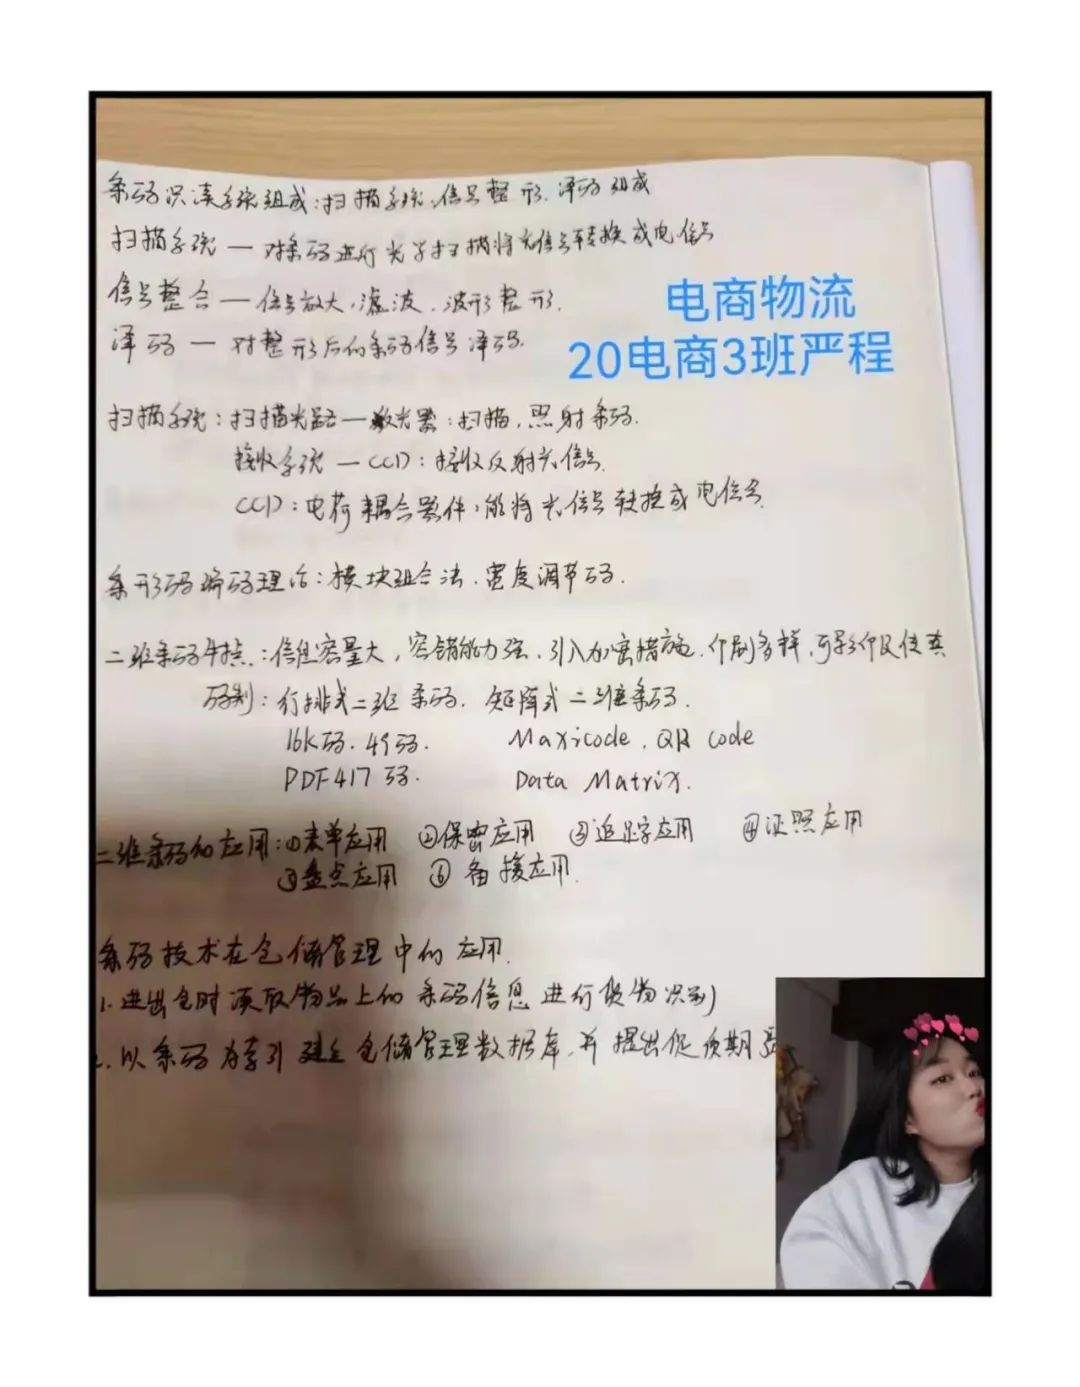 条码识读系统组成:扫描系统、信号整形、译码组成
扫描系统 — 对条码进行光学扫描将光信号转换成电信号
信号整合 — 信号放大、滤波、波形整形.
译码 — 对整形后的条码信号译码.
电商物流
20电商3班严程
扫描系统:扫描光路 — 激光器:扫描,照射条码.
接收系统 — CCD:接收反射光信号.
CCD:电荷耦合器件,能将光信号转换成电信号.
条形码编码理论:模块组合法.宽度调节码.
二维条码特点:信息容量大,容错能力强、引入加密措施、印刷多样,可影印及传真
码制:行排式二维条码.矩阵式二维条码.
16K码.49码. Maxicode.QR code
PDF417码. Data Matrix.
二维条码的应用:①表单应用 ②保密应用 ③追踪应用 ④证照应用
⑤盘点应用 ⑥备援应用.
条码技术在仓储管理中的应用.
1.进出仓时读取物品上的条码信息进行货物识别
2.以条码为索引建立仓储管理数据库,并提出促预期